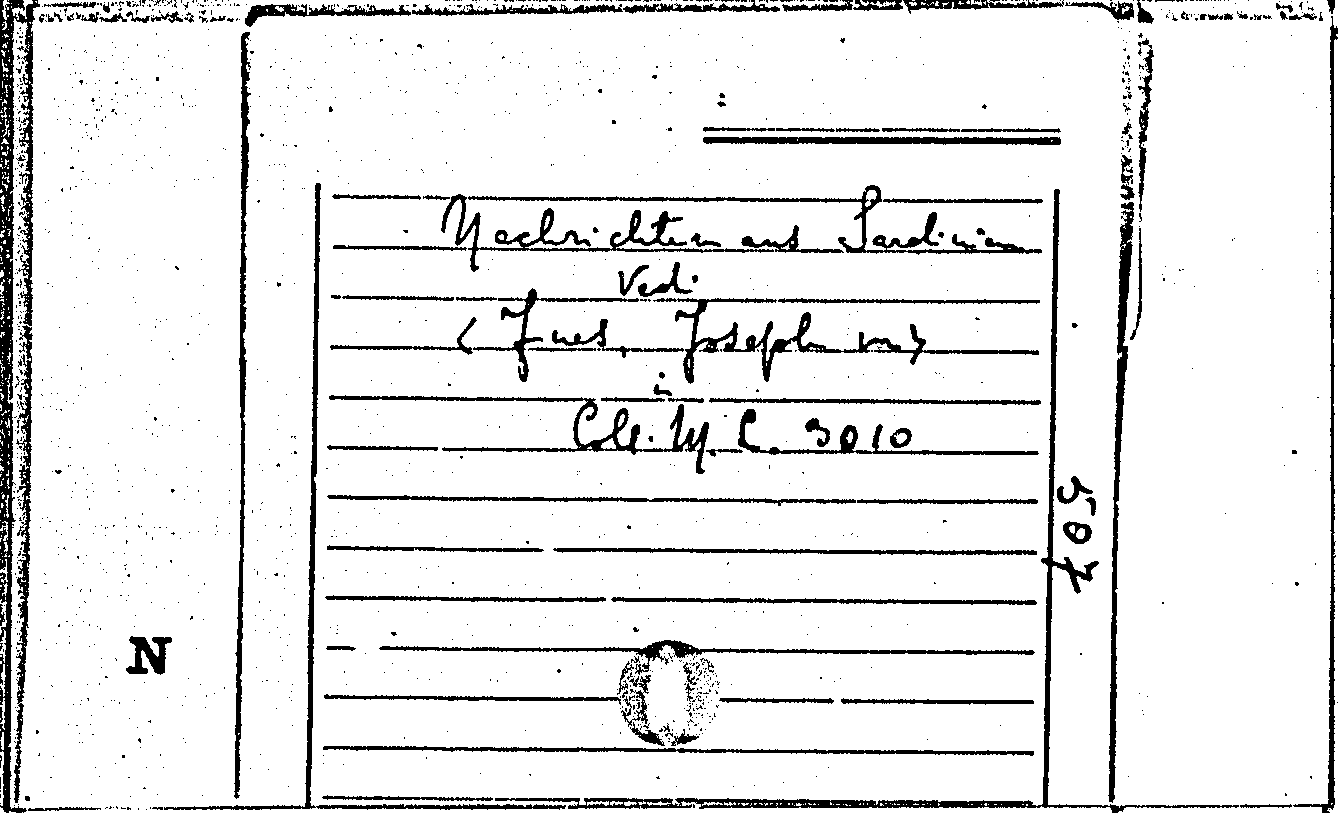 Nachrichten aus Sardinien
Vedi
<Fues, Joseph von>
in
Coll. M. L. 3010
507
N